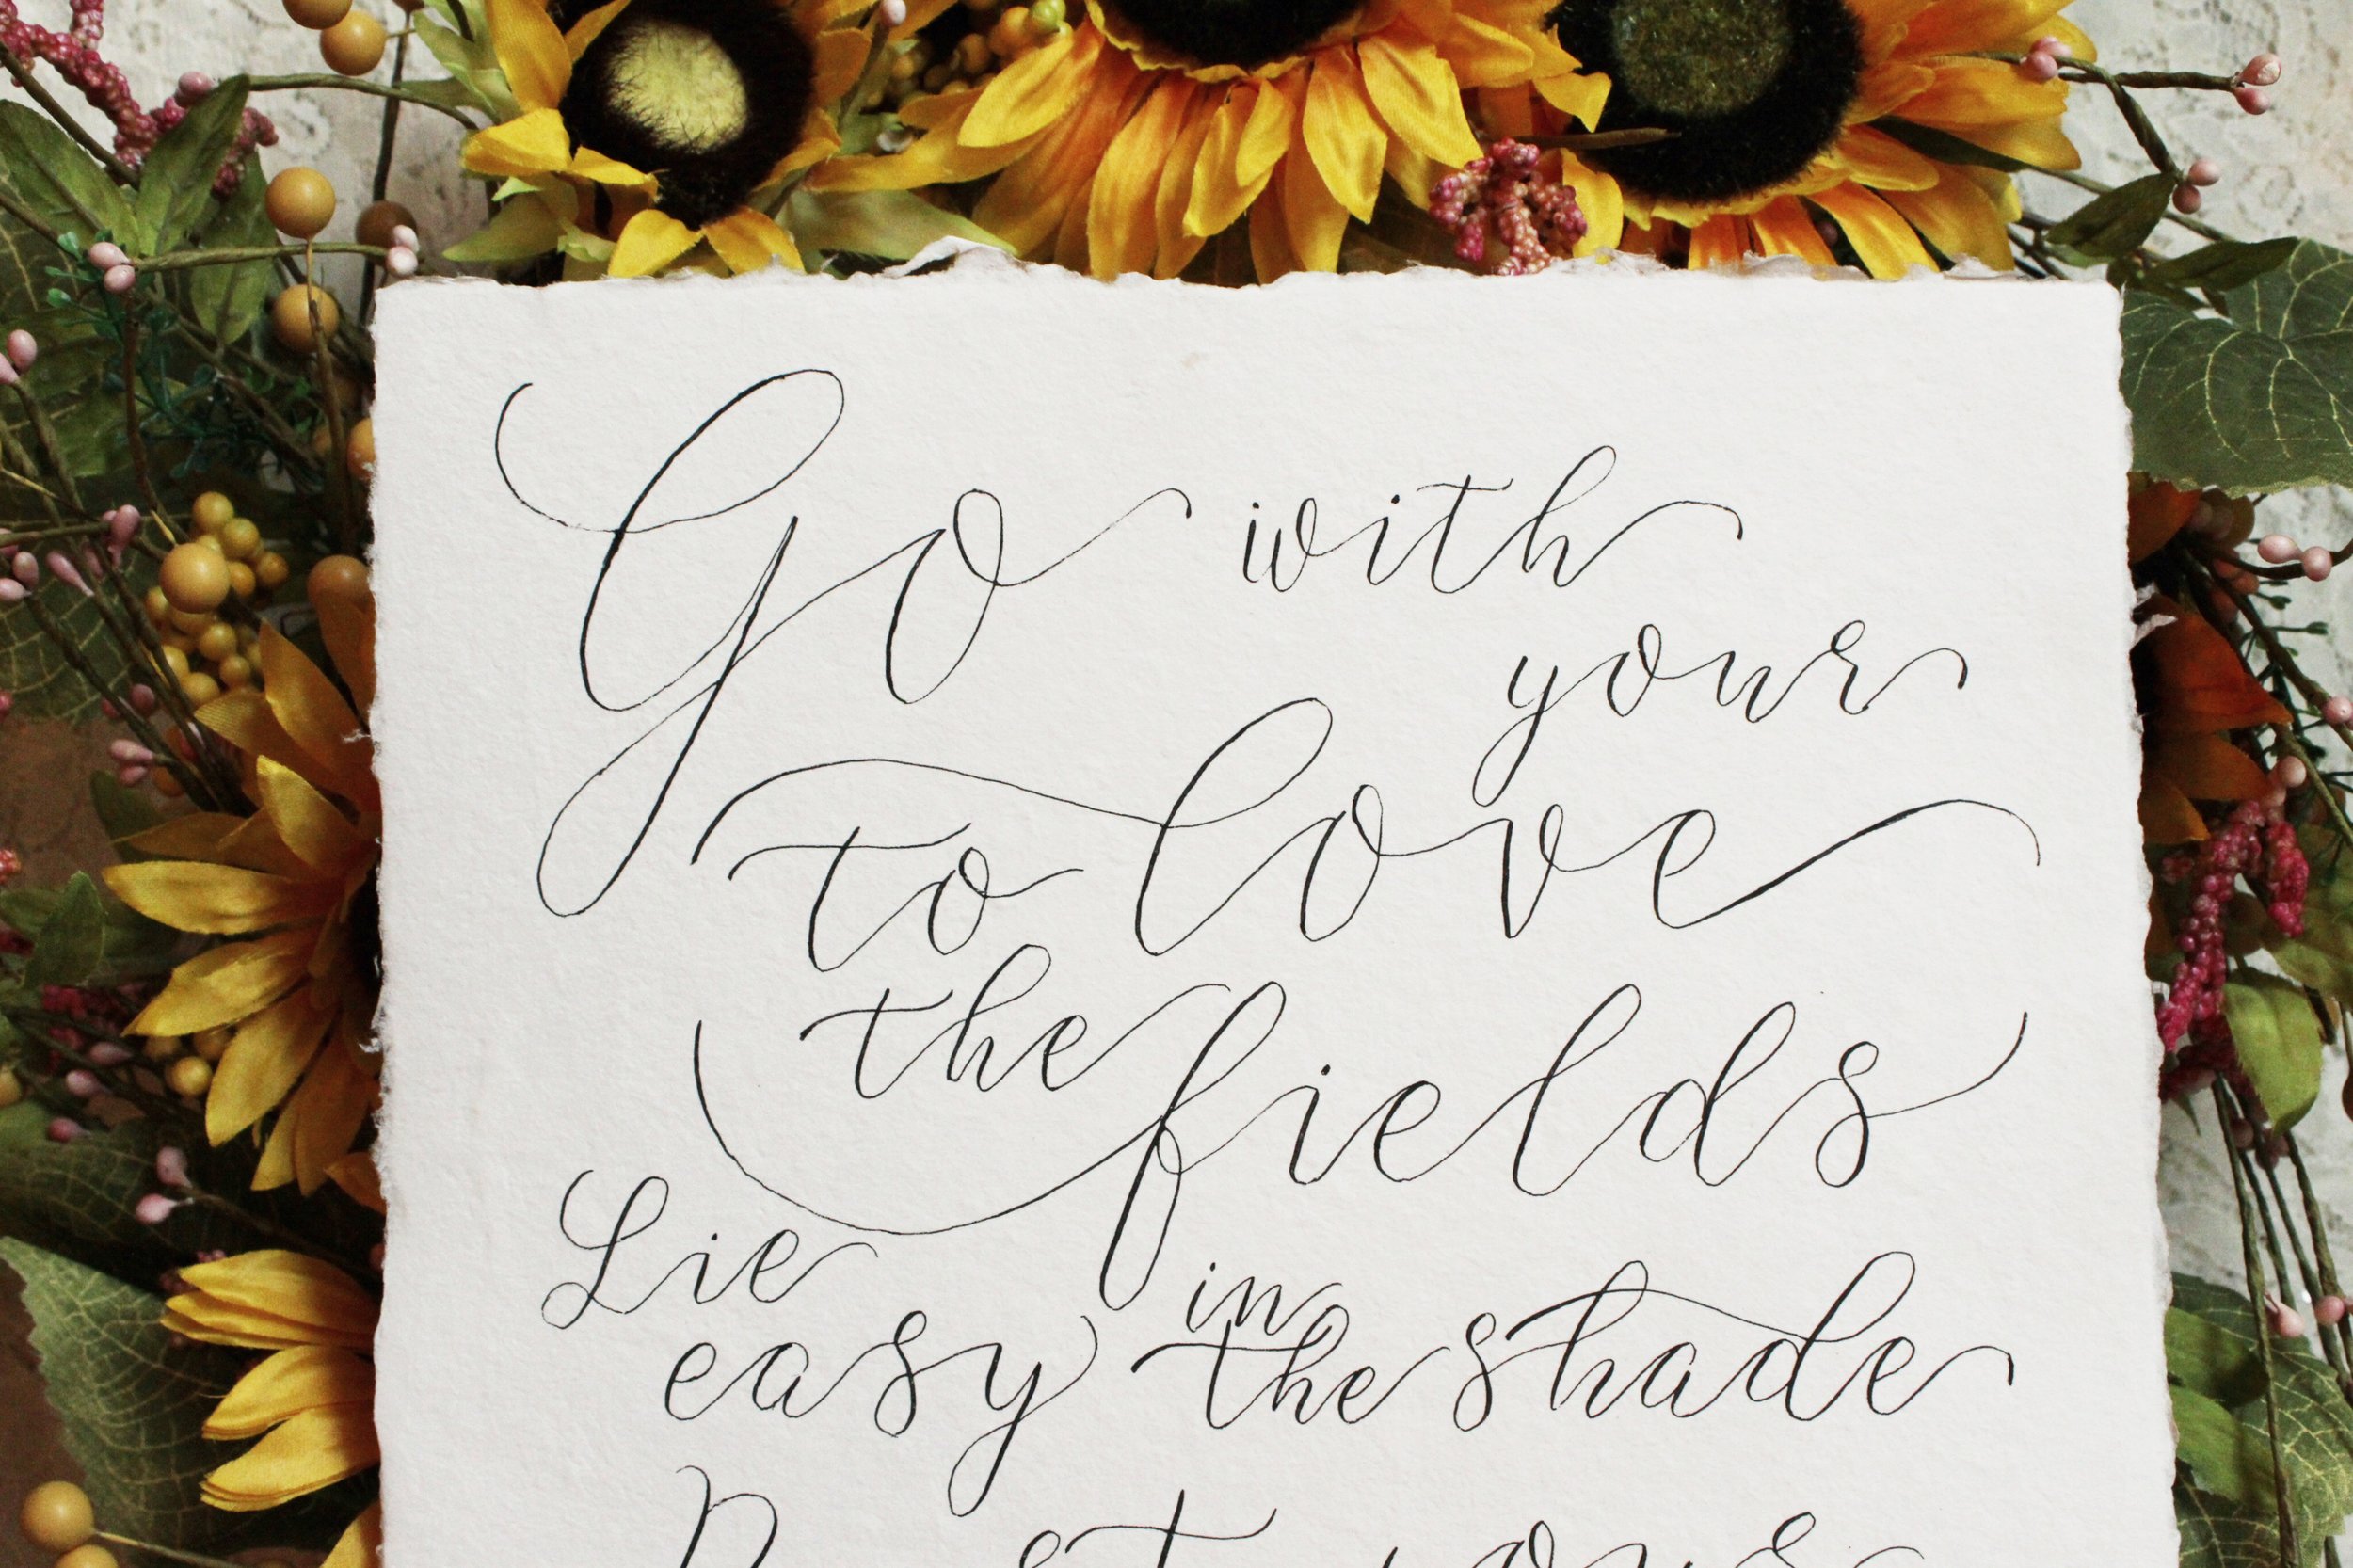 Go with
your
to love
the fields
Lie in
easy the shade